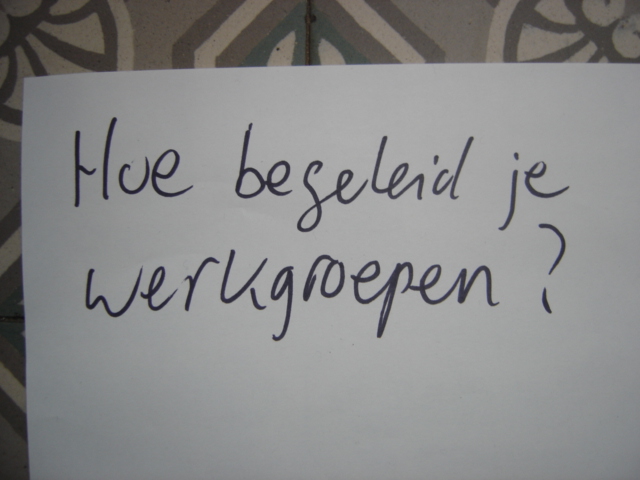 Hoe begeleid je
werkgroepen?